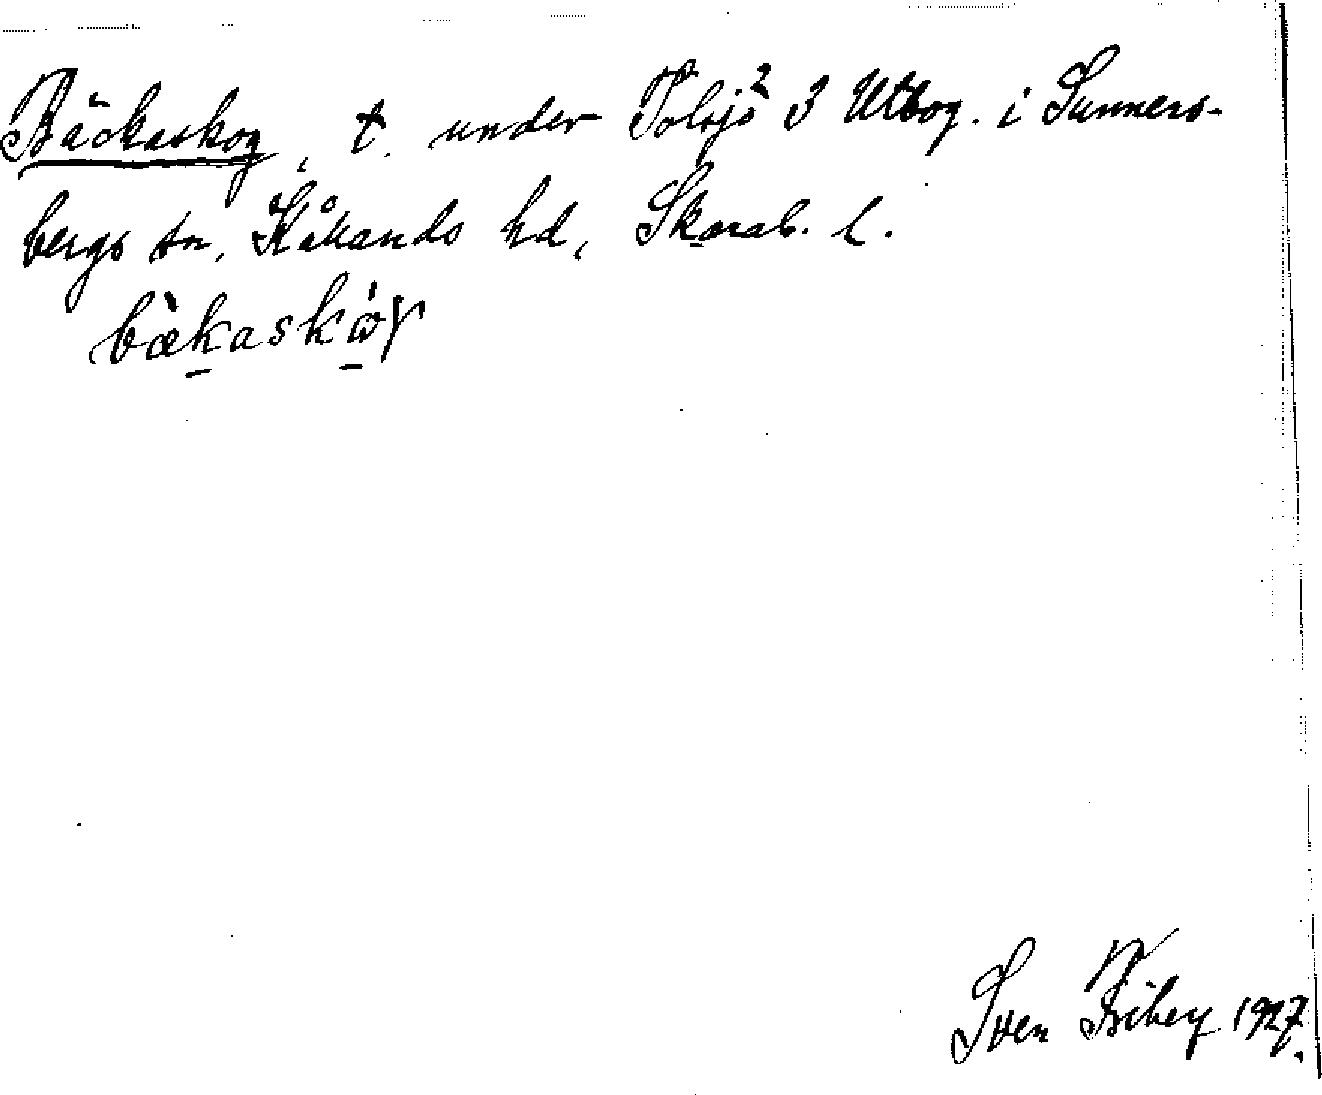 Bäckaskog, t. under Tolsjö 2 3 Utbog. i Sunners-
bergs sn, Kållands hd, Skarab. l.
bækaskωγ
Sven Friberg 1927.